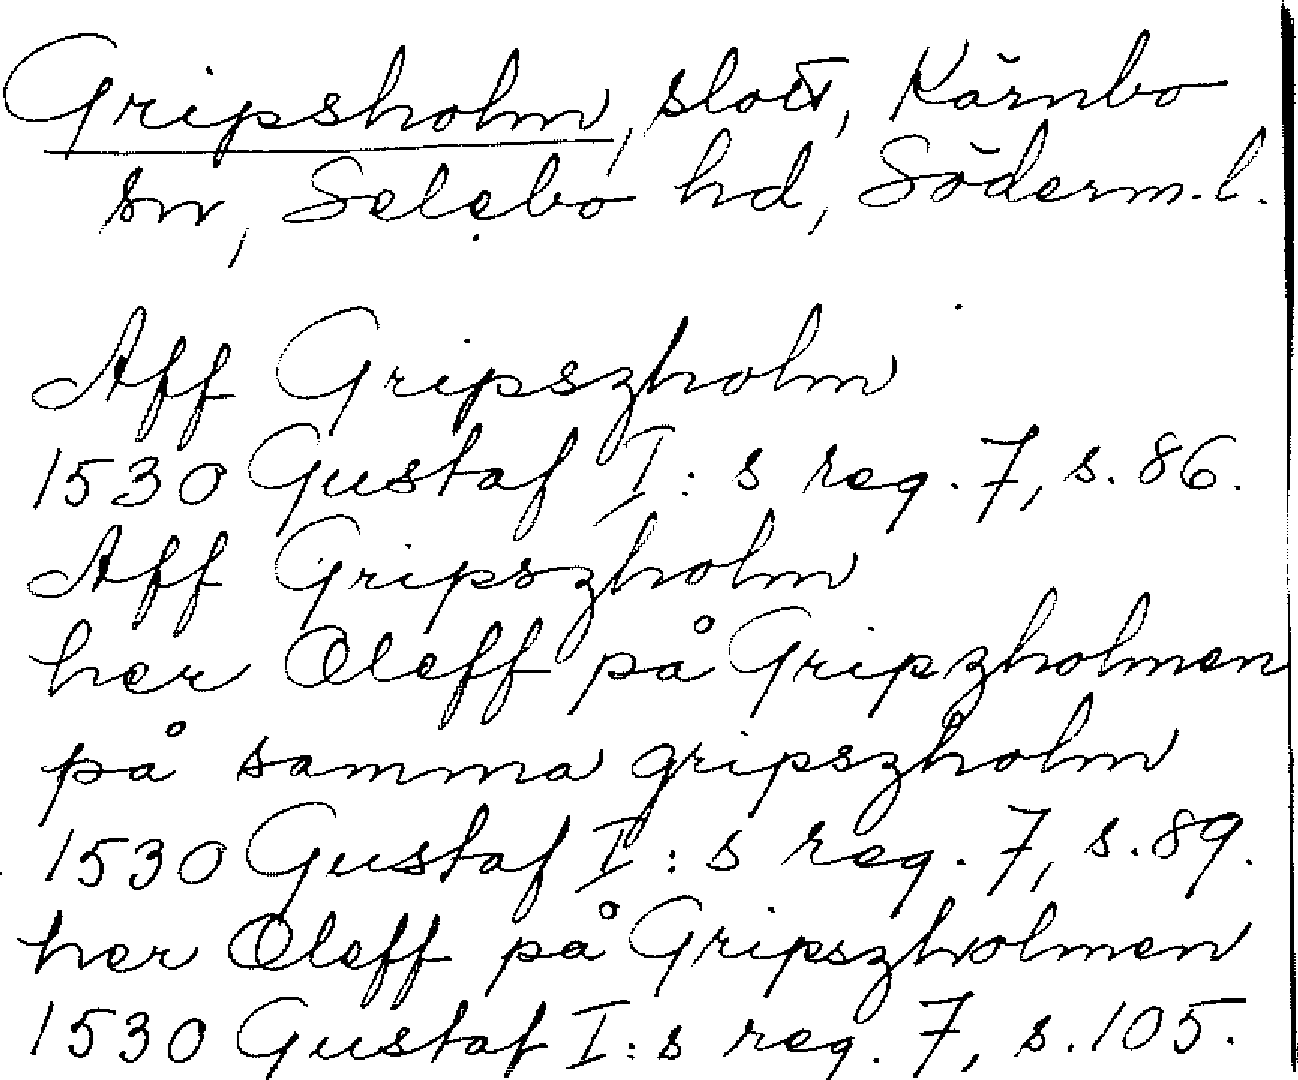 Gripsholm, slott, Kärnbo
sn, Selebo hd, Söderm.l.
Aff Gripszholm
1530 Gustaf I:s reg. 7, s. 86.
Aff Gripszholm
her Oleff på Gripzholmen
på samma gripszholm
1530 Gustaf I:s reg. 7, s. 89.
her Oleff på Gripszholmen
1530 Gustaf I:s reg. 7, s. 105.